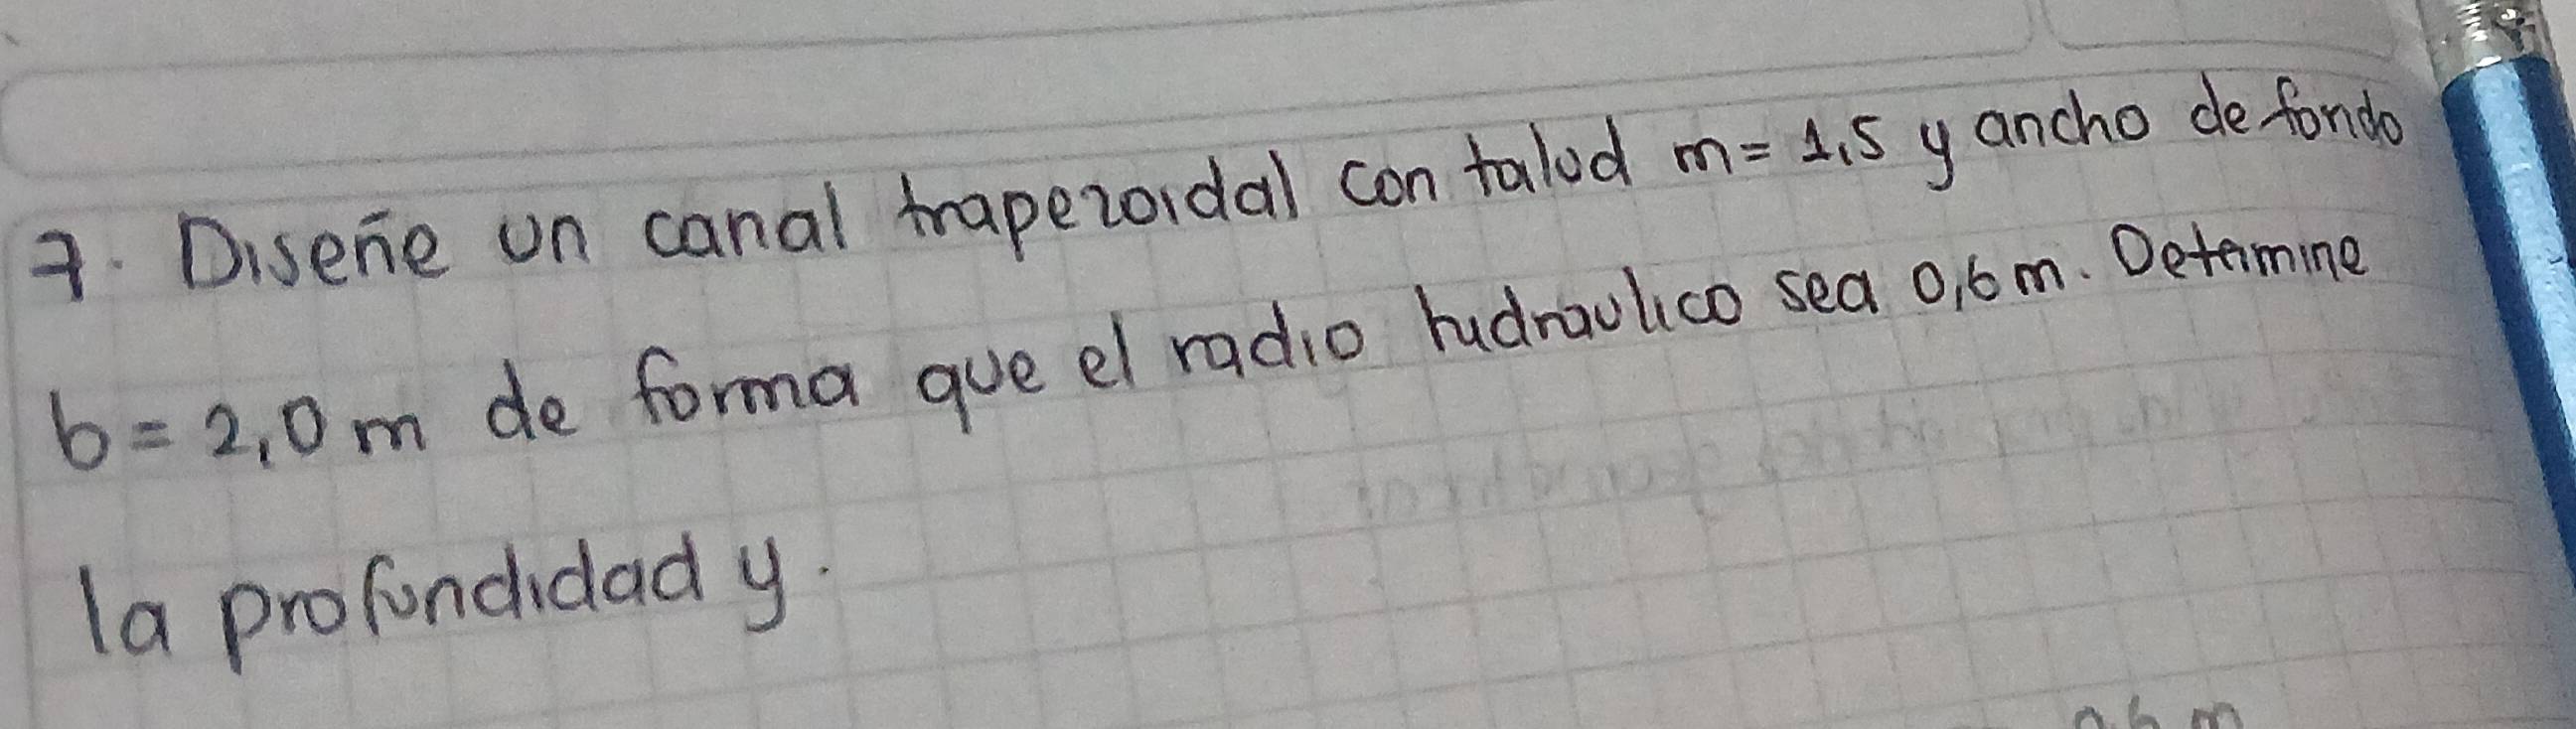 7. Diseñe un canal trapezoidal con talud m = 1,5 y ancho de fondo
b = 2,0 m de forma que el radio hidraulico sea 0,6 m. Determine
la profundidad y.
0,6 m